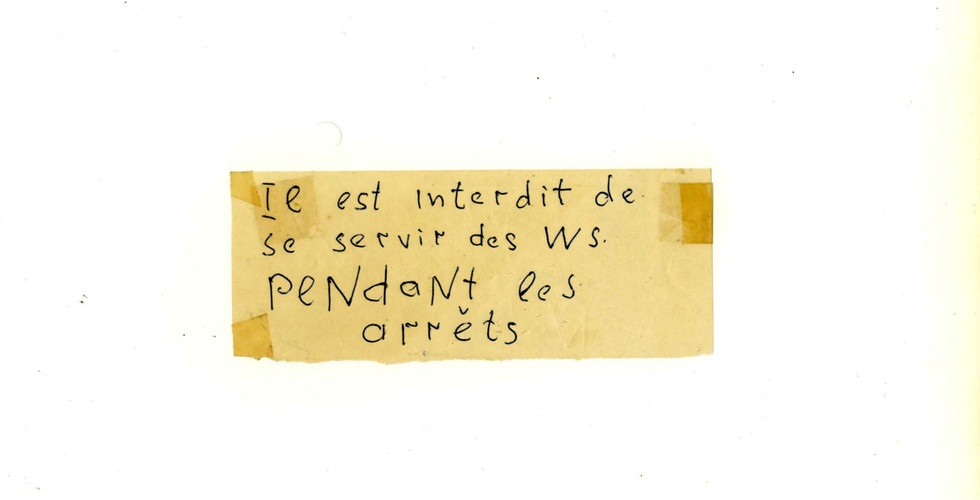 Il est interdit de
se servir des WS.
PeNdaNt les
arrěts